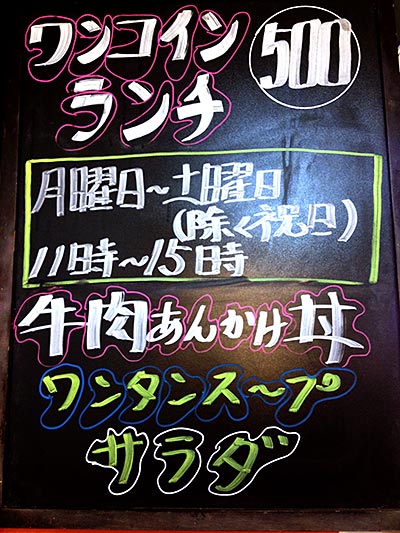 ワンコイン 500
ランチ
月曜日～土曜日
(除く祝日)
11時～15時
牛肉あんかけ丼
ワンタンス〜プ
サラダ